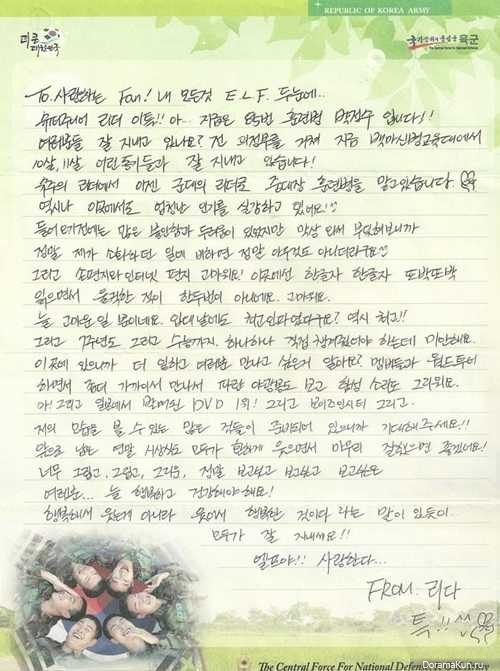 REPUBLIC OF KOREA ARMY
육군
The Central Force for National Defense
To. 사랑하는 Fan! 내 모든것 E.L.F. 두눈에...
슈퍼주니어 리더 이특!! 아... 지금은 훈련병 박정수 입니다!!
여러분들 잘 지내고 있나요? 전 지금
10살, 11살 어린 동이들과 잘 지내고 있습니다!
슈주의 리더에서 이젠 군대의 리더로 중대장 훈련병을 맡고있습니다
역시나 이곳에서도 엄청난 인기를 실감하고 있어요!!
들어오기전에는 많은 불안함과 두려움이 있었지만 막상 와서 부딪혀보니까
정말 제가 소화하던 일에 비하면 정말 아무것도 아니더라구요
그리고 손편지와 인터넷 편지 고마워요! 이곳에선 한글자 한글자 또박또박
읽으면서 울컥한 적이 한두번이 아니에요. 고마워요.
늘 고마운 일 뿐이네요. 역시 최고!!
그리고 7주년도 그리고 하나하나 직접 챙겨줬어야 하는데 미안해요.
이곳에 있으니까 더 일하고 여러분 만나고 싶은거 알아요? 멤버들과 월드투어
하면서 좀더 가까이서 만나서 파란 야광봉도 보고 함성 소리도 그리워요.
아! 그리고 일본에서 발매된 DVD 1위! 그리고 보이즈인시티 그리고
저의 모습을 볼 수 있는 많은 것들이 준비되어 있으니까 기대해주세요!!
앞으로 남은 연말 시상식도 모두가 환하게 웃으면서 마무리 잘했으면 좋겠어요!
너무 그립고, 그립고, 그리운, 정말 보고싶고 보고싶고 보고싶은
여러분... 늘 행복하고 건강해야해요!
행복해서 웃는게 아니라 웃어서 행복한 것이다 라는 말이 있듯이
모두가 잘 지내세요!!
엘프야!! 사랑한다...
FROM. 리다
특!!
The Central Force For National Defense
DoramaKun.ru